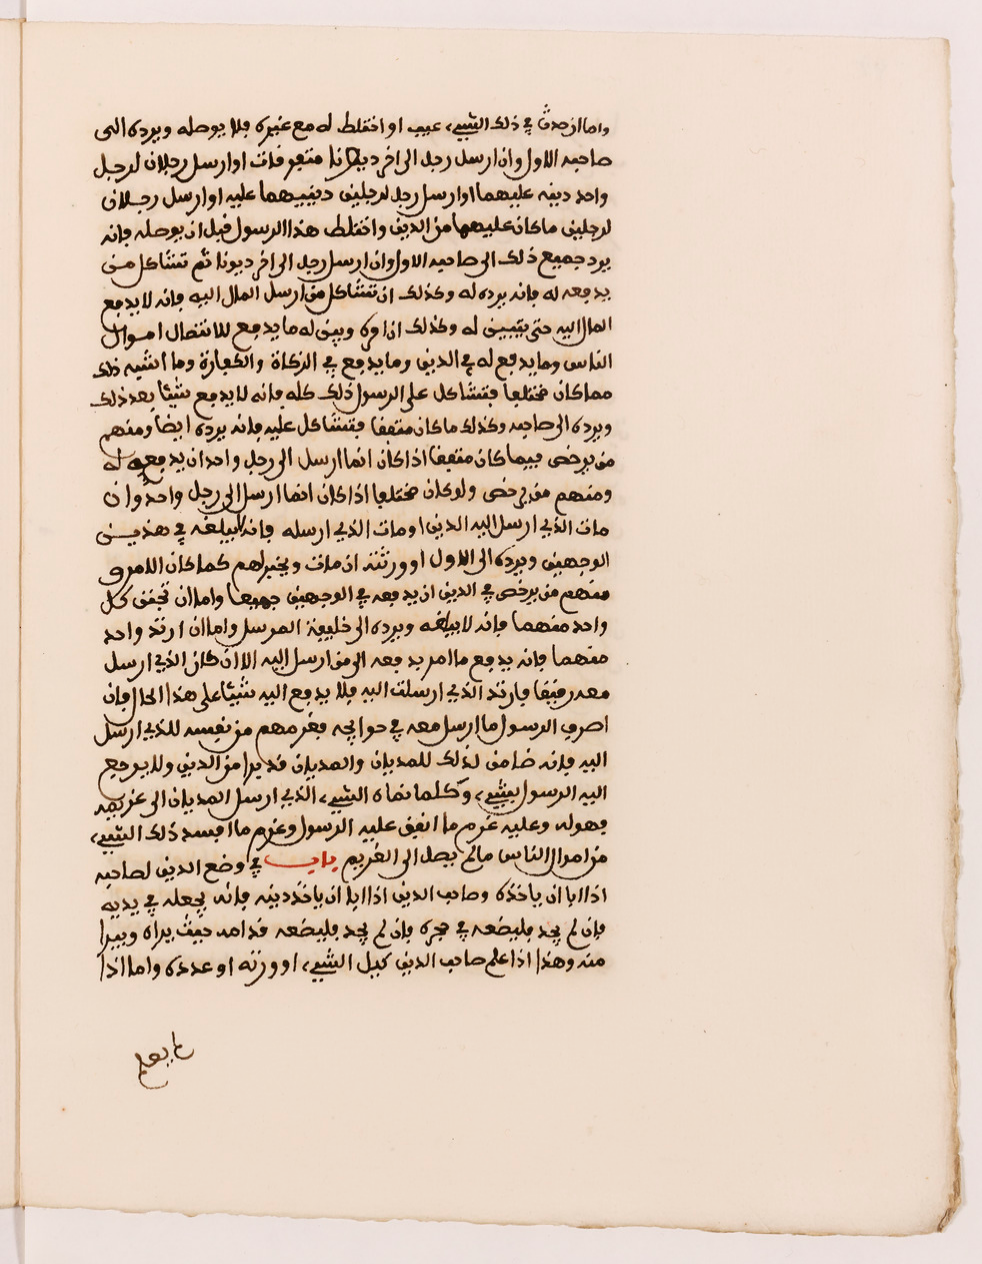 واما ان حدث في ذلك الشيء عيب او اختلط له مع غيره فلا يوصله ويرده الى
صاحبه الاول وان ارسل رجل الى اخر ديونا متفرفات او ارسل رجلان لرجل
واحد دينه عليهما او ارسل رجل لرجلين دينيهما عليه او ارسل رجلان
لرجلين ماكان عليهما من الدين واختلط هذا الرسول فبل ان يوصله فانه
يرد جميع ذلك الى صاحبه الاول وان ارسل رجل الى اخر ديونا ثم تشاكل من
يدفعه له فانه يرده له وكذلك ان تشاكل من ارسل المال اليه فانه لا يدفع
المال اليه حتى يتبين له وكذلك ان امره وبين له ما يدفع للانتصال اموال
الناس وما يدفع له في الدين وما يدفع في الزكاة والكفارة وما اشبه ذلك
مما كان مختلفا فتشاكل على الرسول ذلك كله فانه لا يدفع شيئا بعد ذلك
ويرده الى صاحبه وكذلك ما كان متففا فتشاكل عليه فانه يرده ايضا ومنهم
من يرخص فيما كان متففا اذا كان انما ارسل الى رجل واحد ان يدفعه له
ومنهم من يرخص ولو كان مختلفا اذا كان انما ارسل الى رجل واحد وان
مات الذي ارسل اليه الدين او مات الذي ارسله فانه لا يبلغه في هذين
الوجهين ويرده الى الاول او ورثته ان مات ويخبرلهم كما كان الامر و
منهم من يرخص في الدين ان يدفعه في الوجهين جميعا واما ان تجنن كل
واحد منهما فانه لا يبلغه ويرده الى خليفة المرسل واما ان ارتد واحد
منهما فانه يدفع ما امر بدفعه الى من ارسل اليه الا ان كان الذي ارسل
معه رفيفا فارتد الذي ارسلت اليه فلا يدفع اليه شيئا على هذا الحال فان
اصرف الرسول ما ارسل معه في حوايجه فغرمهم من نفسه للذي ارسل
اليه فانه ضامن لذلك للمديان والمديان فد برا من الدين ولا يرجع
اليه الرسول بشيء وكلما نماه الشيء الذي ارسل المديان الى غريمه
فهوله وعليه غرم ما انفق عليه الرسول وغرم ما افسد ذلك الشيء
من اموال الناس مالم يصل الى الغريم باب في وضع الدين لصاحبه
اذا ابا ان ياخذه وصاحب الدين اذا ابا ان ياخذ دينه فانه يجعله في يديه
فان لم يجد فليضعه في حجره فان لم يجد فليضعه فدامه حيث يراه ويبرا
منه وهذا اذا علم صاحب الدين كيل الشيء او وزنه او عدده واما اذا
لم يعلم